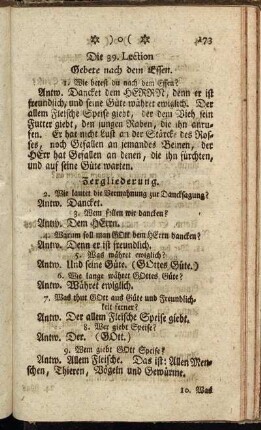 ☼ ) o ( ☼ 173
Die 39. Lection
Gebete nach dem Essen.
1. Wie betest du nach dem Essen?
Antw. Dancket dem HERRN, denn er ist
freundlich, und seine Güte währet ewiglich. Der
allem Fleische Speise giebt, der dem Vieh sein
Futter giebt, den jungen Raben, die ihn anruf-
fen. Er hat nicht Lust an der Stärcke des Ros-
ses, noch Gefallen an jemandes Beinen, der
HErr hat Gefallen an denen, die ihn fürchten,
und auf seine Güte warten.
Zergliederung.
2. Wie lautet die Vermahnung zur Dancksagung?
Antw. Dancket.
3. Wem sollen wir dancken?
Antw. Dem HErrn.
4. Warum soll man GOtt dem HErrn dancken?
Antw. Denn er ist freundlich.
5. Was währet ewiglich?
Antw. Und seine Güte. (GOttes Güte.)
6. Wie lange währet GOttes Güte?
Antw. Währet ewiglich.
7. Was thut GOtt aus Güte und Freundlich-
keit ferner?
Antw. Der allem Fleische Speise giebt.
8. Wer giebt Speise?
Antw. Der. (GOtt.)
9. Wem giebt GOtt Speise?
Antw. Allem Fleische. Das ist: Allen Men-
schen, Thieren, Vögeln und Gewürme.
10. Was